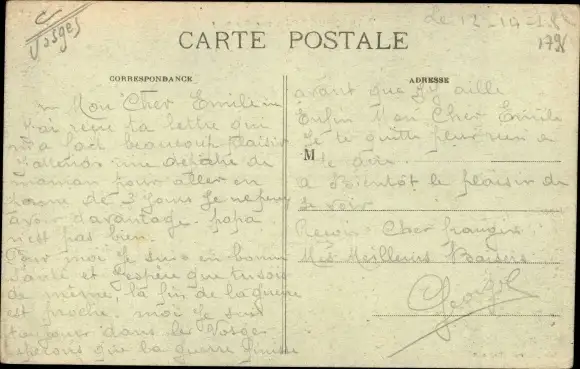 Vosges
Le 12-10-18
1798
CARTE POSTALE
CORRESPONDANCE
Mon Cher Emile
J'ai reçu ta lettre qui
m'a fait beaucoup plaisir
J'attends une dépêche de
maman pour aller en
perme de 3 jours je ne peux
avoir davantage. papa
n'est pas bien.
Pour moi je suis en bonne
santé et j'espère que tu sois
de même, la fin de la guerre
est proche. moi je suis
toujours dans les Vosges
espérons que la guerre finisse
ADRESSE
avant que j'y aille
Enfin mon Cher Emile
Je te quitte plus rien a
M te dire.
a Bientôt le plaisir de
te voir
Reçois Cher frangin
Mes Meilleurs Baisers
Georges